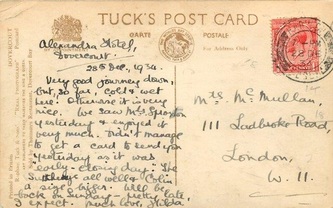 TUCK'S POST CARD
CARTE POSTALE
For Address Only
Alexandra Hotel,
Dovercourt.
28th Dec, 1934.
Very good journey down,
but, so far, cold & wet
here. Otherwise it is very
nice. We saw Mrs
yesterday & enjoyed it
very much. Didn't manage
to get a card to send you
yesterday as it was
early-closing day. The
all well & Colin
a size bigger. Will be
back on Sunday - pretty late
I expect. Much love, Hilda.
Mrs. Mc Mullan,
111 Ladbroke Road
London,
W. 11.